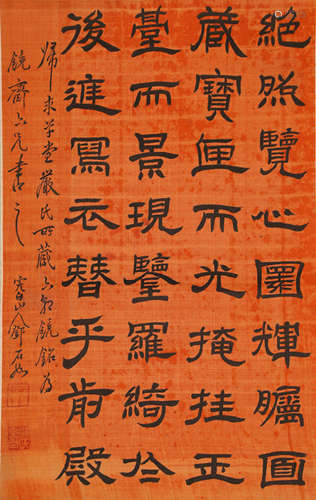 絕照覽心圓輝矚面
藏寶匣而光掩挂玉
臺而景現鑒羅綺於
後庭寫衣簪乎前殿
歸求草堂嚴氏所藏六朝鏡銘為
鏡齋六兄書之 完白山人鄧石如